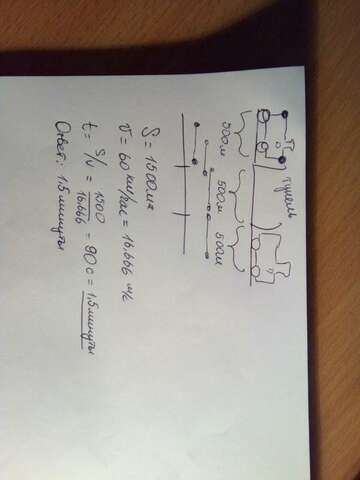 тунель
500м 500м 500м
S = 1500м
V = 60 км/час = 16,666 м/с
t = S/v = 1500/16.666 = 90 с = 1,5 минуты
Ответ: 1.5 минуты